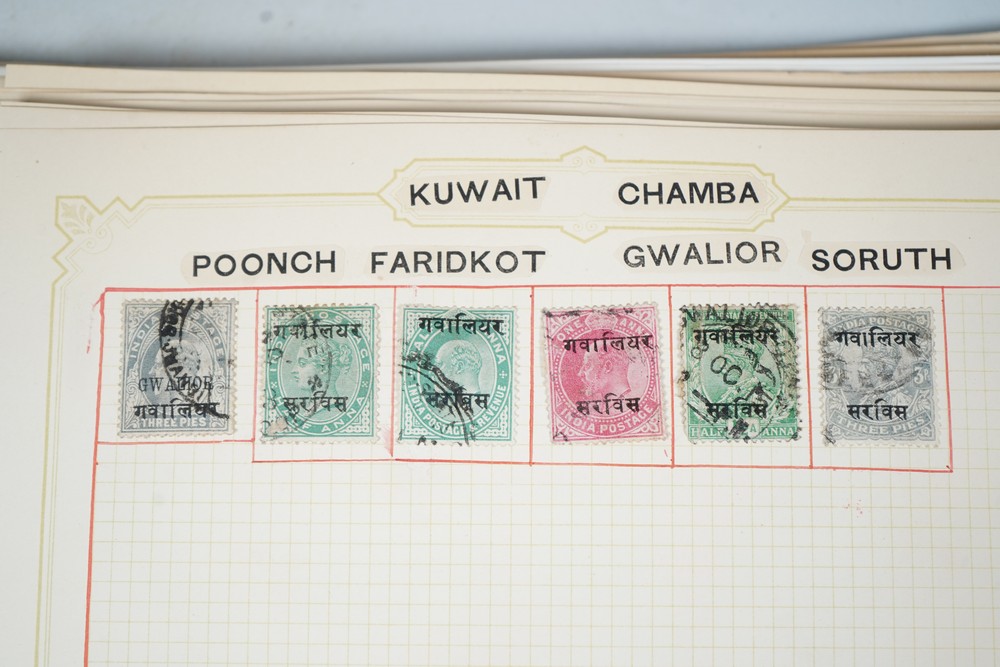 KUWAIT CHAMBA
POONCH FARIDKOT GWALIOR SORUTH
INDIA POSTAGE
GWALIOR
गवालियर
THREE PIES
गवालियर
सरविस
ANNA
गवालियर
सरविस
INDIA POSTAGE & REVENUE
गवालियर
सरविस
INDIA POSTAGE
गवालियर
सरविस
HALF ANNA
INDIA POSTAGE
गवालियर
सरविस
THREE PIES